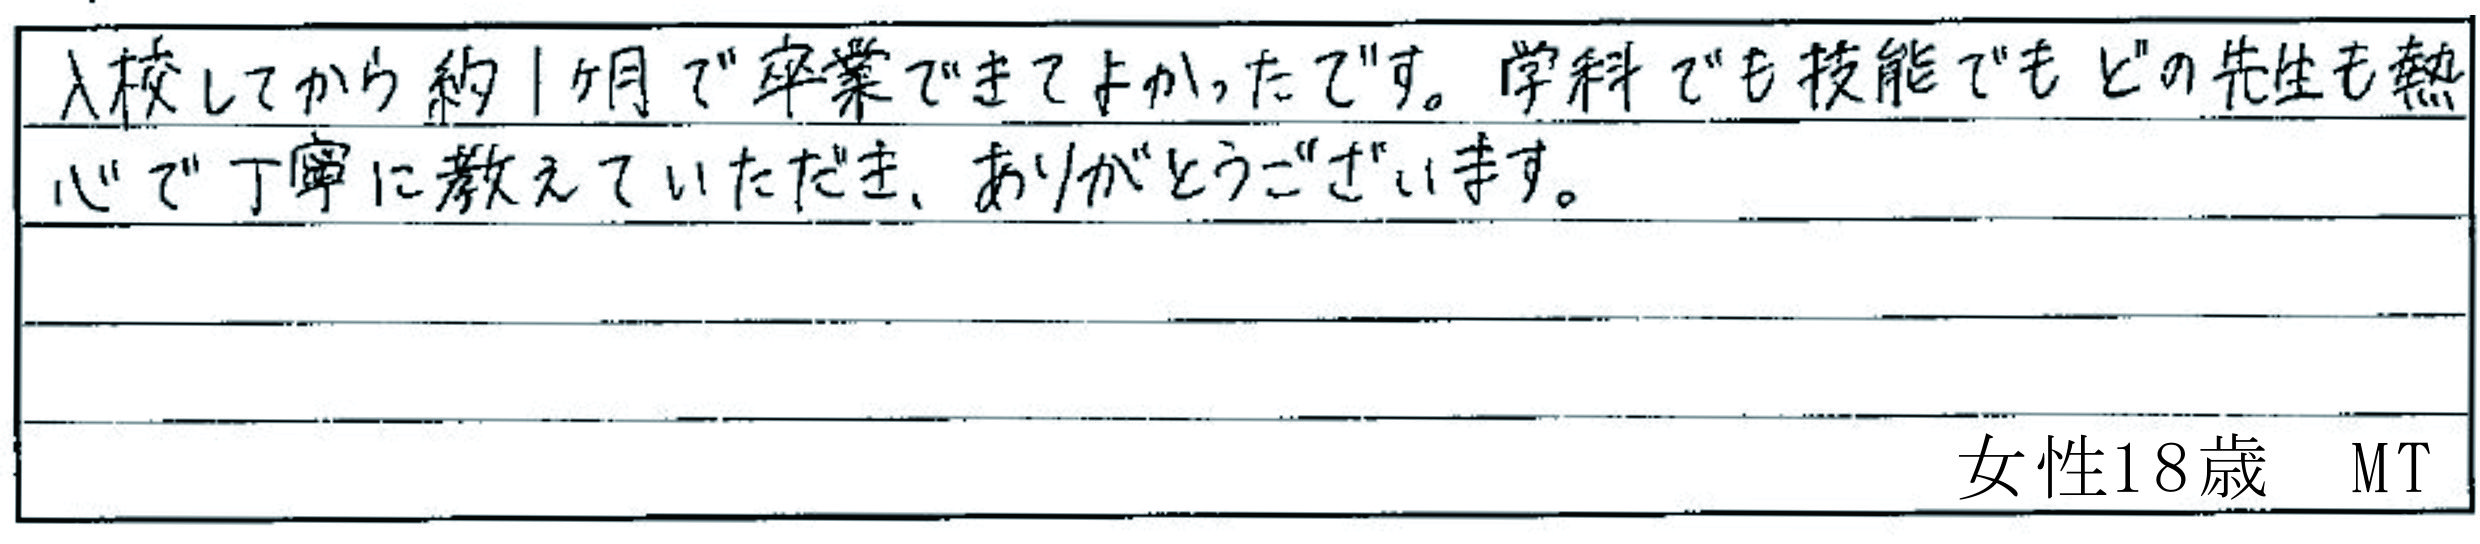 入校してから約1ヶ月で卒業できてよかったです。学科でも技能でもどの先生も熱
心で丁寧に教えていただき、ありがとうございます。
女性18歳　MT